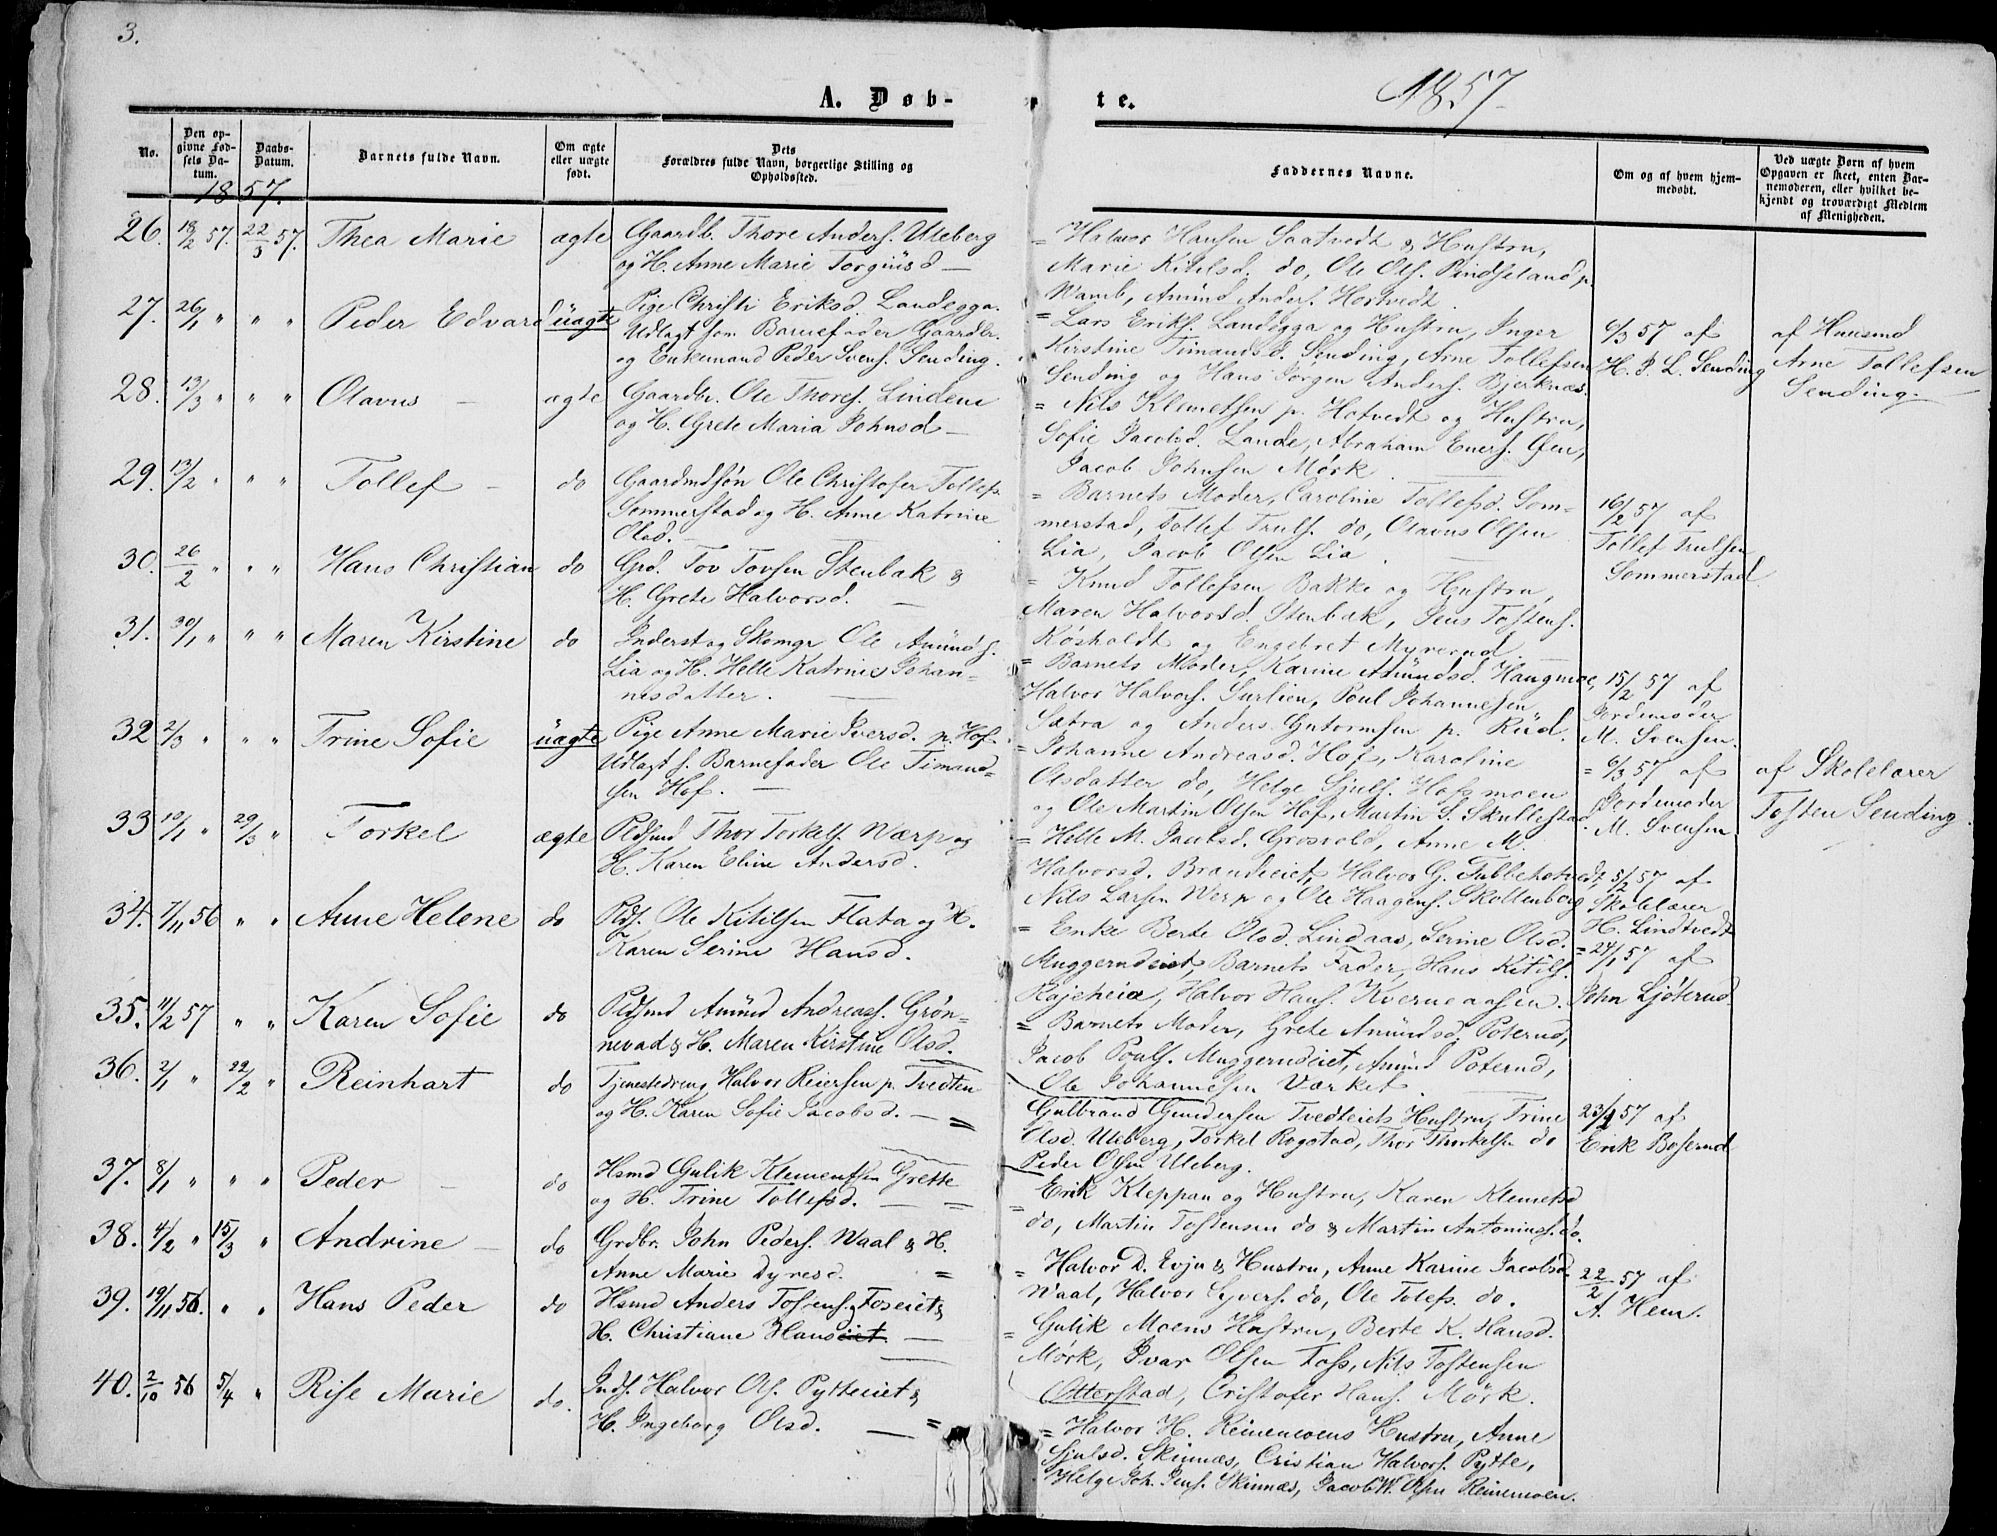 3.
A. Døb-
te.
1857
No.
Den op-
givne Fød-
sels Da-
tum.
Daabs-
Datum.
Barnets fulde Navn.
Om ægte
eller uægte
født.
Dets
Forældres fulde Navn, borgerlige Stilling og
Opholdssted.
Faddernes Navne.
Om og af hvem hjem-
medøbt.
Ved uægte Børn af hvem
Opgaven er skeet, enten Bar-
nemoderen, eller hvilket be-
kjendt og troværdigt Medlem
af Menigheden.
1857.
26. 18/2 57. 22/3 57. Thea Marie ægte
Gaardb. Thore Anders. Uleberg
og H. Anne Marie Torgiusd —
= Halvor Hansen Saatvedt & Hustru,
Marie Kitilsd. do, Ole Ols. Pindseland p.
Wamb, Amund Anders. Hortvedt
27. 26/1 " " " Peder Edvard üægte
Pige Christi Eriksd. Landegga.
Udlagt som Barnefader Gaardbr.
og Enkemand Peder Svens. Sending.
= Lars Eriks. Landegga og Hustru, Inger
Kirstine Timandsd. Sending, Arne Tollefsen
Sending og Hans Jørgen Anders. Bjerknæs.
6/3 57 af
H. P. L. Sending
af Huusmd
Arne Tollefsen
Sending.
28. 13/3 " " " Olavus — ægte
Gaardbr. Ole Thores. Lindem
og H. Grete Maria Johnsd —
= Nils Klemetsen p. Hotvedt og Hustru,
Sofie Jacobsd. Lande, Abraham Eners. Øen,
Jacob Johnsen Mørk
29. 13/2 " " " Tollef — do
Gaardmdsøn Ole Christofer Tollefs.
Sommerstad og H. Anne Katrine
Olsd. —
= Barnets Moder, Caroline Tollefsd. Som-
merstad, Tollef Truls. do, Olavus Olsen
Lia, Jacob Olsen Lia
16/2 57 af
Tollef Trulsen
Sommerstad
30. 26/2 " " " Hans Christian do
Grd. Tov Tovsen Stenbak &
H. Grete Halvorsd. —
= Knud Tollefsen Bakke og Hustru,
Maren Halvorsd. Stenbak, Jens Tostens.
Røsholdt og Engebret Myrerud
31. 30/1 " " " Maren Kirstine do
Inderst og Skomgr Ole Amunds.
Lia og H. Helle Katrine Johan-
nisdatter.
= Barnets Moder, Karine Amundsd. Haugmoe,
Halvor Halvors. Surlien, Poul Johannesen
Sætra og Anders Guttormsen p. Rüd.
15/2 57 af
Jordemoder
M. Svensen.
32 2/3 " " " Trine Sofie üægte
Pige Anne Marie Iversd. p. Hof
Udlagt s. Barnefader Ole Timand-
sen Hof. —
= Johanne Andreasd. Hof, Karoline
Olsdatter do, Helge Sjuls. Hofsmoen
og Ole Martin Olsen Hof, Martin S. Skullestad.
= 6/3 57 af
Jordemoder
M. Svensen
af Skolelærer
Tosten Sending.
33 10/1 " 29/3 " Torkel ægte
Pldsmd Thor Torkels. Wærp og
H. Karen Eline Andersd.
= Helle M. Jacobsd. Grosvold, Anne M.
Halvorsd. Brandeiet, Halvor G. Tubbehotvedt,
Nils Larsen Werp og Ole Haagens. Skollenborg
5/2 57 af
Skolelærer
H. Lindtvedt
34. 7/11 56 " " Anne Helene do
Plds. Ole Kitilsen Flata og H.
Karen Serine Hansd.
= Enke Berte Olsd. Lindaas, Serine Olsd.
Muggerudeiet, Barnets Fader, Hans Kitils.
Røjeheia, Halvor Hans. Kverneaasen.
= 24/1 57 af
John Ljøterud
35. 11/2 57 " " Karen Sofie do
Pldsmd Amund Andreass. Grøn-
nevad & H. Maren Kirstine Olsd.
= Barnets Moder, Grete Amundsd. Poterud,
Jacob Pouls. Muggerudeiet, Amund Poterud,
Ole Johannesen Værket
36. 2/1 " 22/2 " Reinhart do
Tjenestedreng Halvor Reiersen p. Tvedten
og H. Karen Sofie Jacobsd. — =
Gulbrand Gundersen Tvedteiets Hustru, Trine
Olsd. Uleberg, Torkel Rogstad, Thor Thorkelsen do
Peder Olsen Uleberg.
23/1 57 af
Erik Boserud
37. 8/1 " " " Peder — do
Hsmd Gulik Klementsen Grette
og H. Trine Tollefsd. — =
= Erik Kleppan og Hustru, Karen Klemetsd
do, Martin Tostensen do & Martin Antonius. do.
38. 4/2 " 15/3 " Andrine — do
Grdbr. John Peders. Waal & H.
Anne Marie Dyresd. =
= Halvor D. Evju & Hustru, Anne Karine Jacobsd.
Waal, Halvor Syvers. do, Ole Tolefs. do.
22/2 57 af
A. Hem.
39. 19/11 56. " " Hans Peder do
Hsmd Anders Tostens. Foseiet &
H. Christiane Hans —
= Gulik Moens Hustru, Berte K. Hansd.
Mørk, Ivar Olsen Foss, Nils Tostensen
Otterstad, Cristofer Hans. Mørk.
40. 2/10 56 5/4 " Rise Marie do.
Inds. Halvor Ols. Pytteeiet &
H. Ingeborg Olsd. — =
= Halvor H. Reinemoens Hustru, Anne
Sjulsd. Skinnæs, Cristian Halvors. Pytte,
Helge Joh. Jens. Skinnæs, Jacob W. Olsen Reinemoen.